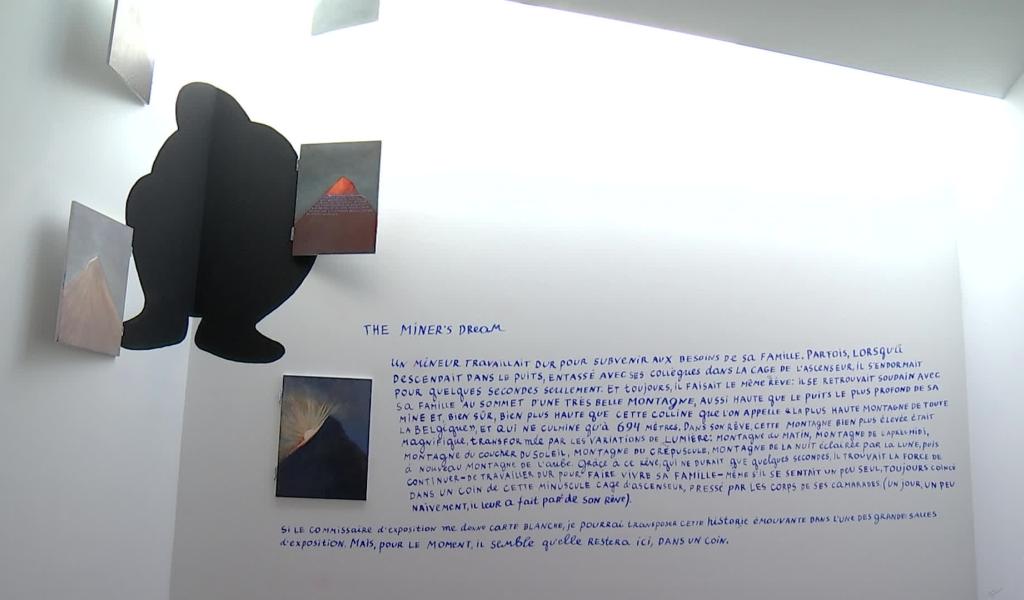 THE MINER'S DREAM
UN MINEUR TRAVAILLAIT DUR POUR SUBVENIR AUX BESOINS DE SA FAMILLE. PARFOIS, LORSQU'IL
DESCENDAIT DANS LE PUITS, ENTASSÉ AVEC SES COLLÈGUES DANS LA CAGE DE L'ASCENSEUR, IL S'ENDORMAIT
POUR QUELQUES SECONDES SEULEMENT. ET TOUJOURS, IL FAISAIT LE MÊME RÊVE: IL SE RETROUVAIT SOUDAIN AVEC
SA FAMILLE AU SOMMET D'UNE TRÈS BELLE MONTAGNE, AUSSI HAUTE QUE LE PUITS LE PLUS PROFOND DE SA
MINE ET, BIEN SÛR, BIEN PLUS HAUTE QUE CETTE COLLINE QUE L'ON APPELLE «LA PLUS HAUTE MONTAGNE DE TOUTE
LA BELGIQUE», ET QUI NE CULMINE QU'À 694 MÈTRES. DANS SON RÊVE, CETTE MONTAGNE BIEN PLUS ÉLEVÉE ÉTAIT
MAGNIFIQUE, TRANSFORMÉE PAR LES VARIATIONS DE LUMIÈRE: MONTAGNE DU MATIN, MONTAGNE DE L'APRÈS-MIDI,
MONTAGNE DU COUCHER DU SOLEIL, MONTAGNE DU CRÉPUSCULE, MONTAGNE DE LA NUIT ÉCLAIRÉE PAR LA LUNE, PUIS
À NOUVEAU MONTAGNE DE L'AUBE. GRÂCE À CE RÊVE, QUI NE DURAIT QUE QUELQUES SECONDES, IL TROUVAIT LA FORCE DE
CONTINUER DE TRAVAILLER DUR POUR FAIRE VIVRE SA FAMILLE – MÊME S'IL SE SENTAIT UN PEU SEUL, TOUJOURS COINCÉ
DANS UN COIN DE CETTE MINUSCULE CAGE D'ASCENSEUR, PRESSÉ PAR LES CORPS DE SES CAMARADES (UN JOUR, UN PEU
NAÏVEMENT, IL LEUR A FAIT PART DE SON RÊVE).
SI LE COMMISSAIRE D'EXPOSITION ME DONNE CARTE BLANCHE, JE POURRAI TRANSPOSER CETTE HISTORIE ÉMOUVANTE DANS L'UNE DES GRANDES SALLES
D'EXPOSITION. MAIS, POUR LE MOMENT, IL SEMBLE QU'ELLE RESTERA ICI, DANS UN COIN.